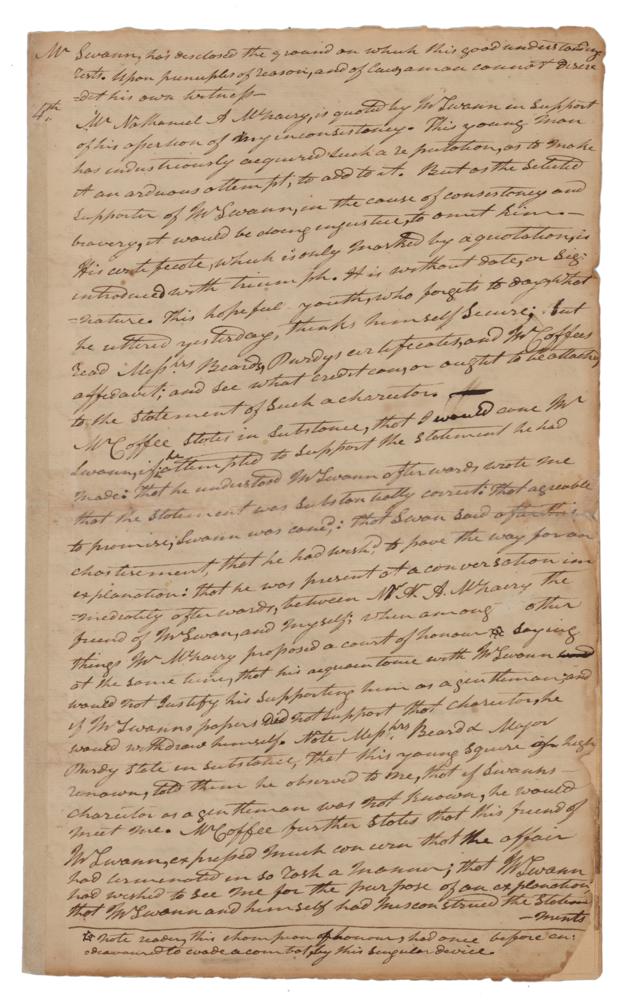 Mr Swann, has disclosed the ground on which this good understanding
rests. Upon principles of reason, and of law, a man cannot discre
-dit his own witness—
4th. Mr Nathaniel A McNairy, is quoted by Mr Swann in support
of his assertion of my inconsistency. This young man
has industriously acquired such a reputation, as to make
it an arduous attempt, to add to it. But as the
supporter of Mr Swann, in the cause of consistency and
bravery, it would be doing injustice, to omit him.—
His certificate, which is only marked by a quotation, is
introduced with triumph. It is without date, or sig-
-nature. This hopeful youth, who forgets to day, what
he uttered yesterday, thinks himself secure; but
read Messrs Beards, Purdys certificates, and Mr Coffees
affidavit; and see what credit can, or ought to be attached
to the statement of such a charector.
Mr Coffee states in substance, that I would cane Mr
Swann, if he attempted to support the statement he had
made: that he understood Mr Swann afterwards wrote me
that the statement was substantially correct: that agreeable
to promise, Swann was caned: that Swan said after this
chastisement, that he had wishd. to pave the way for an
explanation: that he was present at a conversation im
-mediately afterwards, between Mr N. A. McNairy the
friend of Mr Swan, and myself: when among other
things Mr McNairy proposed a court of honour ☆ saying
at the same time, that his acquaintance with Mr Swann
would not justify his supporting him as a gentleman; and
if Mr Swanns papers did not support that charector, he
would withdraw himself. Note Messrs Beard & Major
Purdy state in substance, that this young squire of high
renown, told them he observed to me, that if Swanns
charector as a gentleman was not known, he would
meet me. Mr Coffee further states that this friend of
Mr Swann, expressed much concern that the affair
had terminated in so rash a manner; that Mr Swann
had wished to see me for the purpose of an explanation
that Mr Swann and himself had misconstrued the state
-ments
☆ Note reader, this champion of honour, had once before en-
deavoured to evade a combat, by this singular device.